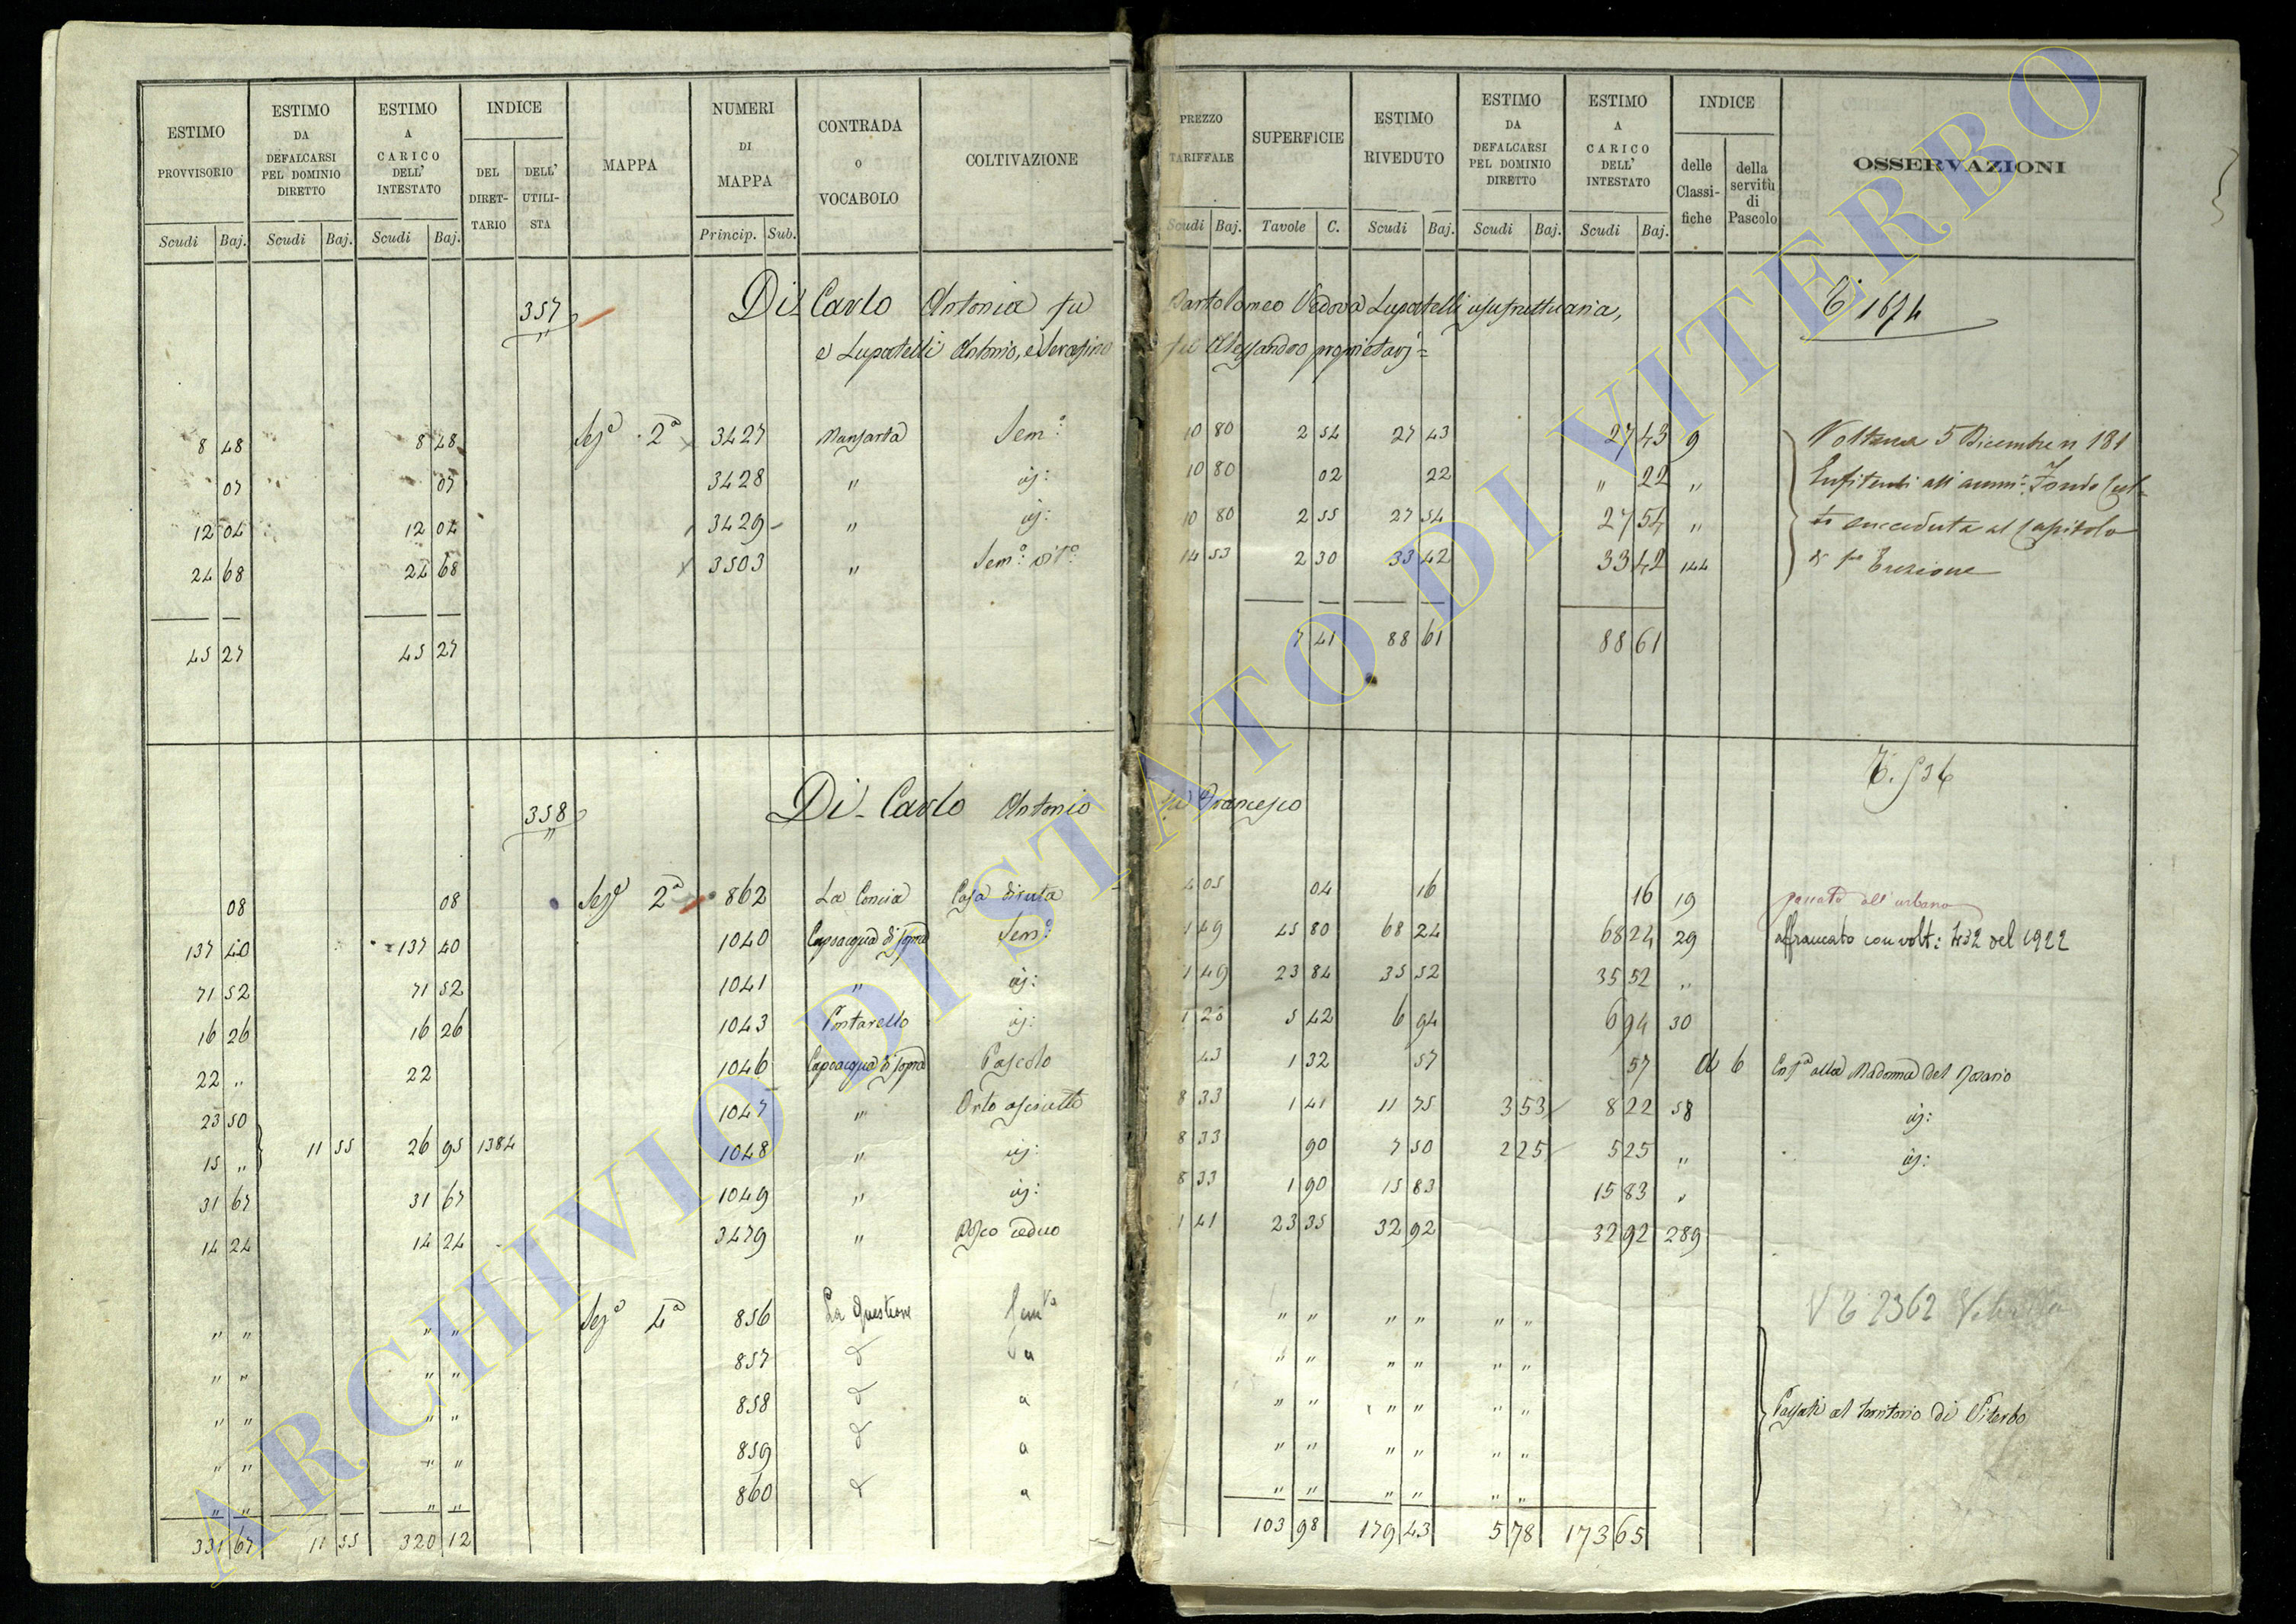 ESTIMO PROVVISORIO Scudi Baj. | ESTIMO DA DEFALCARSI PEL DOMINIO DIRETTO Scudi Baj. | ESTIMO A CARICO DELL' INTESTATO Scudi Baj. | INDICE DEL DIRET-TARIO DELL' UTILI-STA | MAPPA | NUMERI DI MAPPA Princip. Sub. | CONTRADA O VOCABOLO | COLTIVAZIONE | PREZZO TARIFFALE Scudi Baj. | SUPERFICIE Tavole C. | ESTIMO RIVEDUTO Scudi Baj. | ESTIMO DA DEFALCARSI PEL DOMINIO DIRETTO Scudi Baj. | ESTIMO A CARICO DELL' INTESTATO Scudi Baj. | INDICE delle Classi-fiche della servitù di Pascolo | OSSERVAZIONI
357 Di Carlo Antonia fu Bartolomeo Vedova Lupatelli usufruttuaria,
e Lupatelli Antonio, e Serafino fu Alessandro proprietarj =
8 48 8 48 Sez.e 2a 3427 Sem.o 10 80 2 54 27 43 27 43 9 5 Dicembre n 181
07 07 3428 " id: 10 80 02 22 " 22 "
12 04 12 04 3429 " id: 10 80 2 55 27 54 27 54 " al Capitolo
24 68 24 68 3503 " Sem.o vit.o 14 53 2 30 33 42 33 42 144
45 27 45 27 7 41 88 61 88 61
358 Di Carlo Antonio fu Francesco
08 08 Sez.e 2a 862 La Concia Casa diruta 4 05 04 16 16 19 passata all'urbano
137 40 137 40 1040 Capoacqua di sopra Sem.o 1 49 45 80 68 24 68 24 29 affrancato con volt: 432 del 1922
71 52 71 52 1041 " id: 1 49 23 84 35 52 35 52 "
16 26 16 26 1043 Pontarello id: 1 28 5 42 6 94 6 94 30
22 " 22 1046 Capoacqua di sopra Pascolo 43 1 32 57 57 6 alla Madonna del Rosario
23 50 1047 " Orto asciutto 8 33 1 41 11 75 3 53 8 22 58 id:
15 " 11 55 26 95 1384 1048 " id: 8 33 90 7 50 2 25 5 25 " id:
31 67 31 67 1049 " id: 8 33 1 90 15 83 15 83 "
14 24 14 24 3479 " Bosco ceduo 1 41 23 35 32 92 32 92 289
" " " " Sez.e 4a 856 La Questione Sem.va " " " " " " 2362
" " " " 857 " " " " " "
" " " " 858 " " " " " " Passati al territorio di Viterbo
" " " " 859 " " " " " "
" " " " 860 " " " " " "
331 67 11 55 320 12 103 98 179 43 5 78 173 65
ARCHIVIO DI STATO DI VITERBO